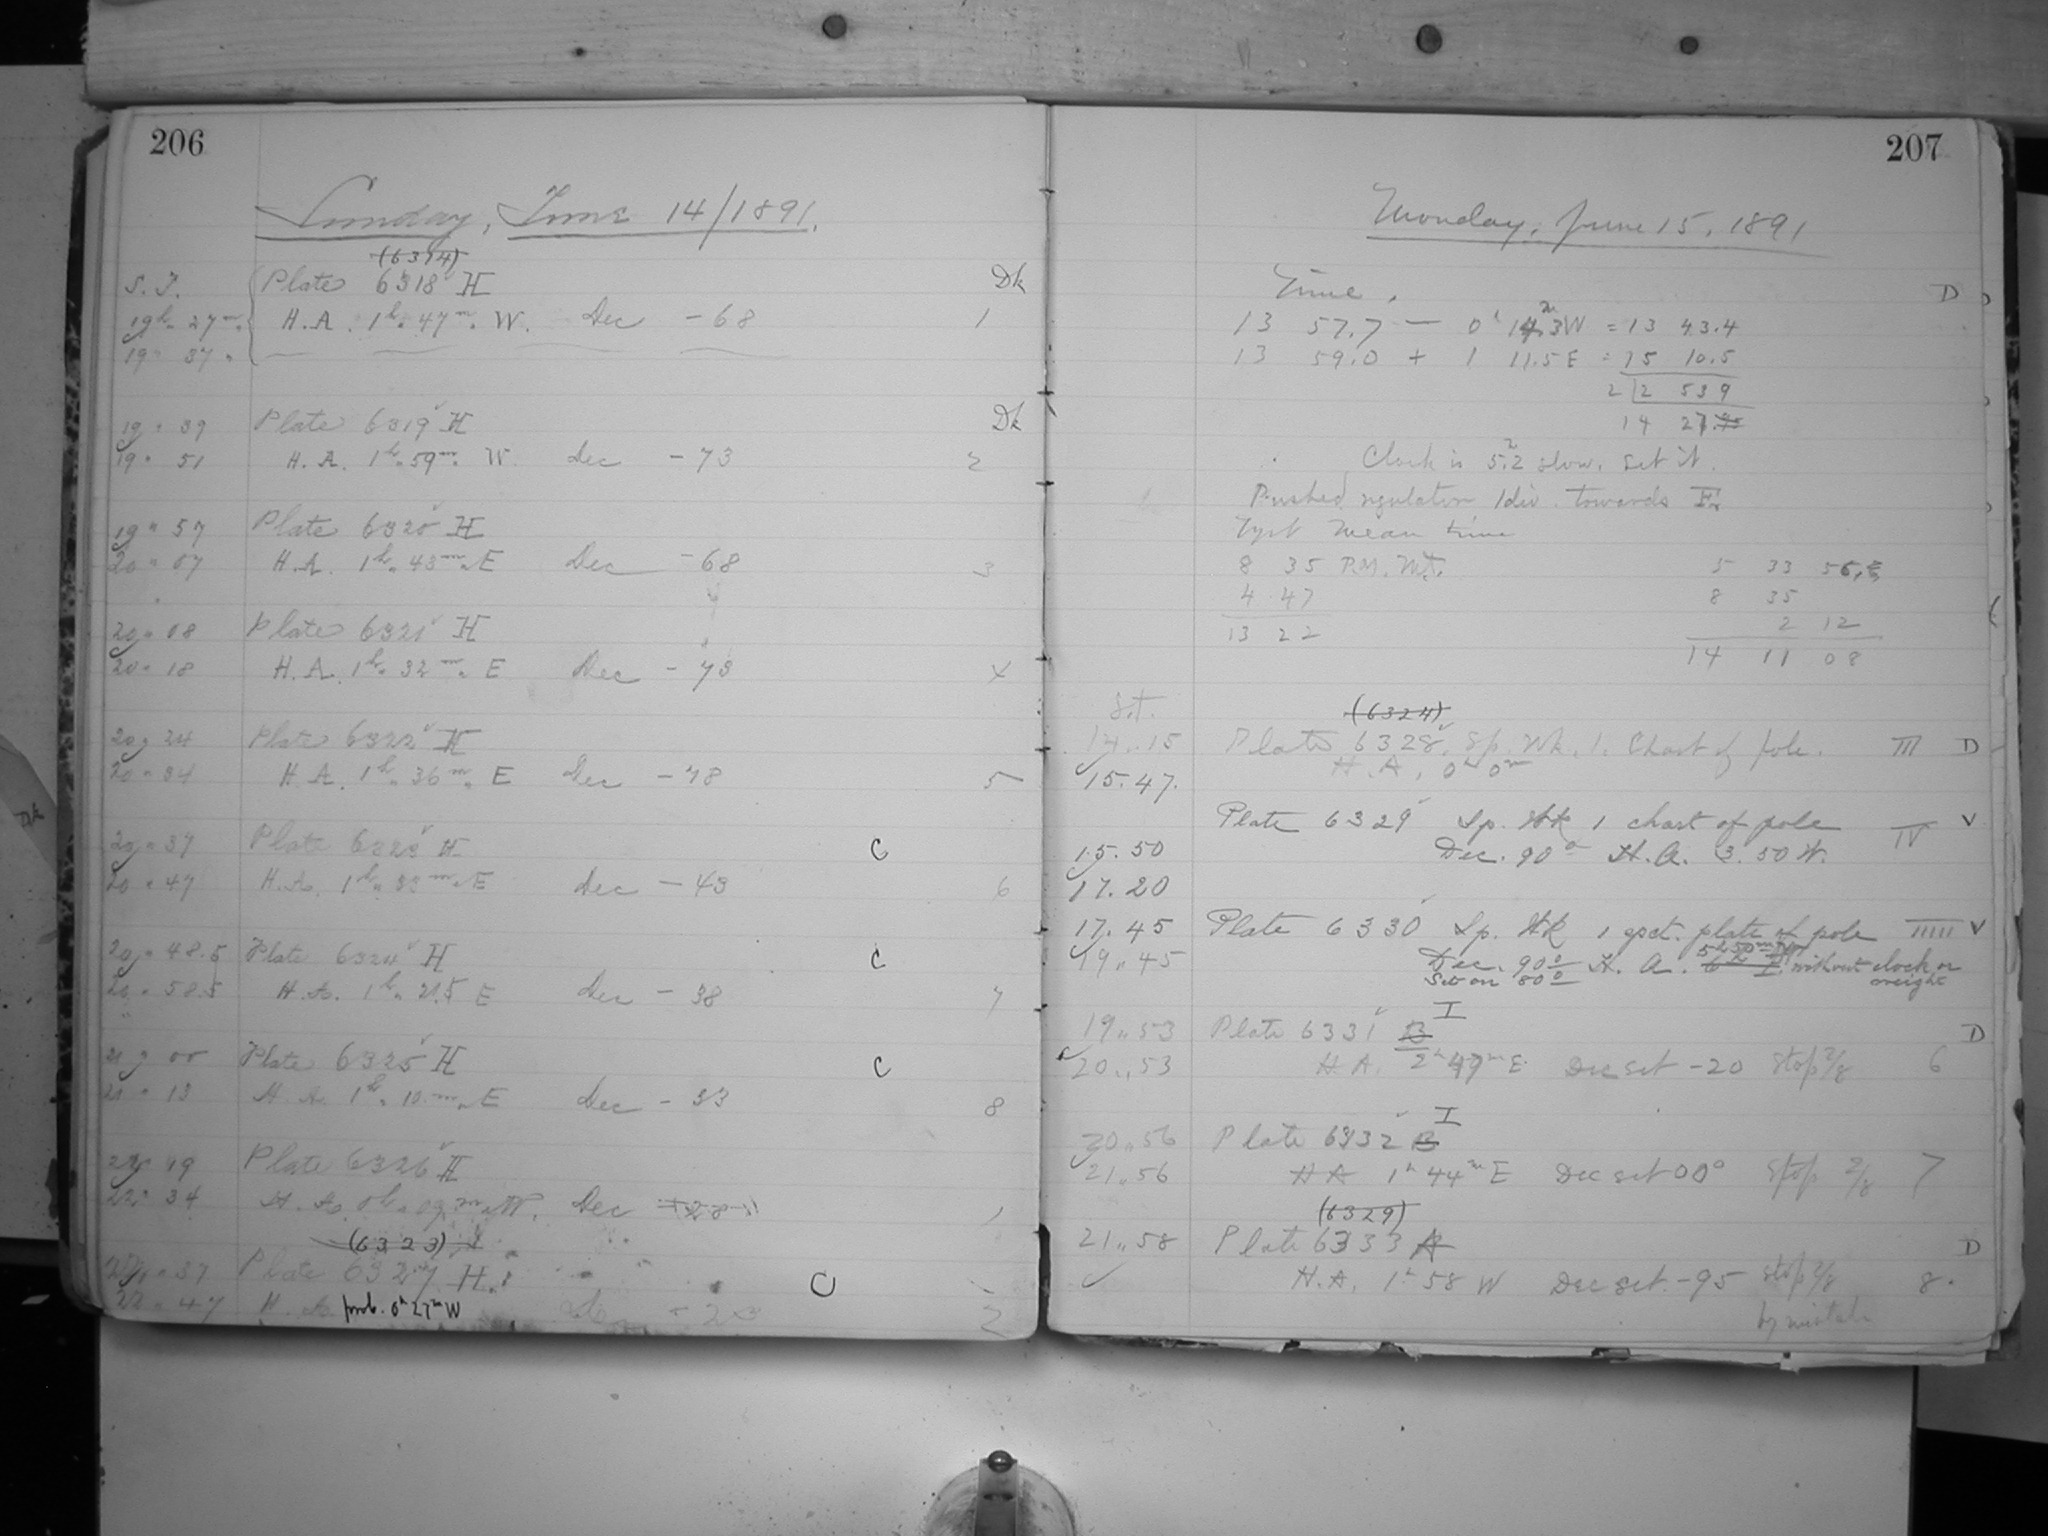 206
Sunday, June 14/1891.
(6314)
S.T. Plate 6318 H Dk
19h. 27m. H.A. 1h. 47m. W. Dec -68 1
19 " 37 "
19 " 39 Plate 6319 H Dk
19 " 51 H.A. 1h. 59m. W. Dec -73 2
19 " 57 Plate 6320 H
20 " 07 H.A. 1h. 43m. E Dec -68 3
20 " 08 Plate 6321 H
20 " 18 H.A. 1h. 32m. E Dec -73 4
20 " 24 Plate 6322 H
20 " 34 H.A. 1h. 36m. E Dec -48 5
20 " 37 Plate 6323 H C
20 " 47 H.A. 1h. 33m. E Dec -43 6
20 " 48.5 Plate 6324 H C
20 " 58.5 H.A. 1h. 21.5 E Dec -38 7
21 " 00 Plate 6325 H C
21 " 13 H.A. 1h. 10m. E Dec -33 8
22 " 19 Plate 6326 H
22 " 34 H.A. 0h. 09m. W. Dec +28 1
(6323)
22 " 37 Plate 6327 H. C
22 " 47 H.A. prob. 0h 27m W 2
207
Monday, June 15, 1891
Time. D
13 57.7 — 0h 14.3m W = 13 43.4
13 59.0 + 1 11.5 E = 15 10.5
2 | 2 539
14 27
Clock is 5.2m slow. Set it.
Pushed regulator 1 div. towards F.
mean time
8 35 P.M. M.T. 5 33 56.
4 47 8 35
13 22 2 12
14 11 08
S.t. (6324)
14.15 Plate 6328. Sp. Wk. 1. Chart of pole. III D
15.47. H.A. 0h 0m
Plate 6329 Sp. Wk 1 chart of pole IV V
15.50 Dec. 90° H.A. 3.50 W.
17.20
17.45 Plate 6330 Sp. Wk 1 spct. plate of pole IIIII V
19.45 Dec. 90° H.A. 5h 50m W 6 E without clock or
Set on 80° weight
19.. 53 Plate 6331 B I D
20.. 53 H.A. 2h 49m E Dec set -20 Stop 2/8 6
20.. 56 Plate 6332 B I
21.. 56 HA 1h 44m E Dec set 00° Stop 2/8 7
(6329)
21.. 58 Plate 6333 A D
H.A. 1h 58 W Dec set -95 Stop 2/8 8.
by mistake
Dk